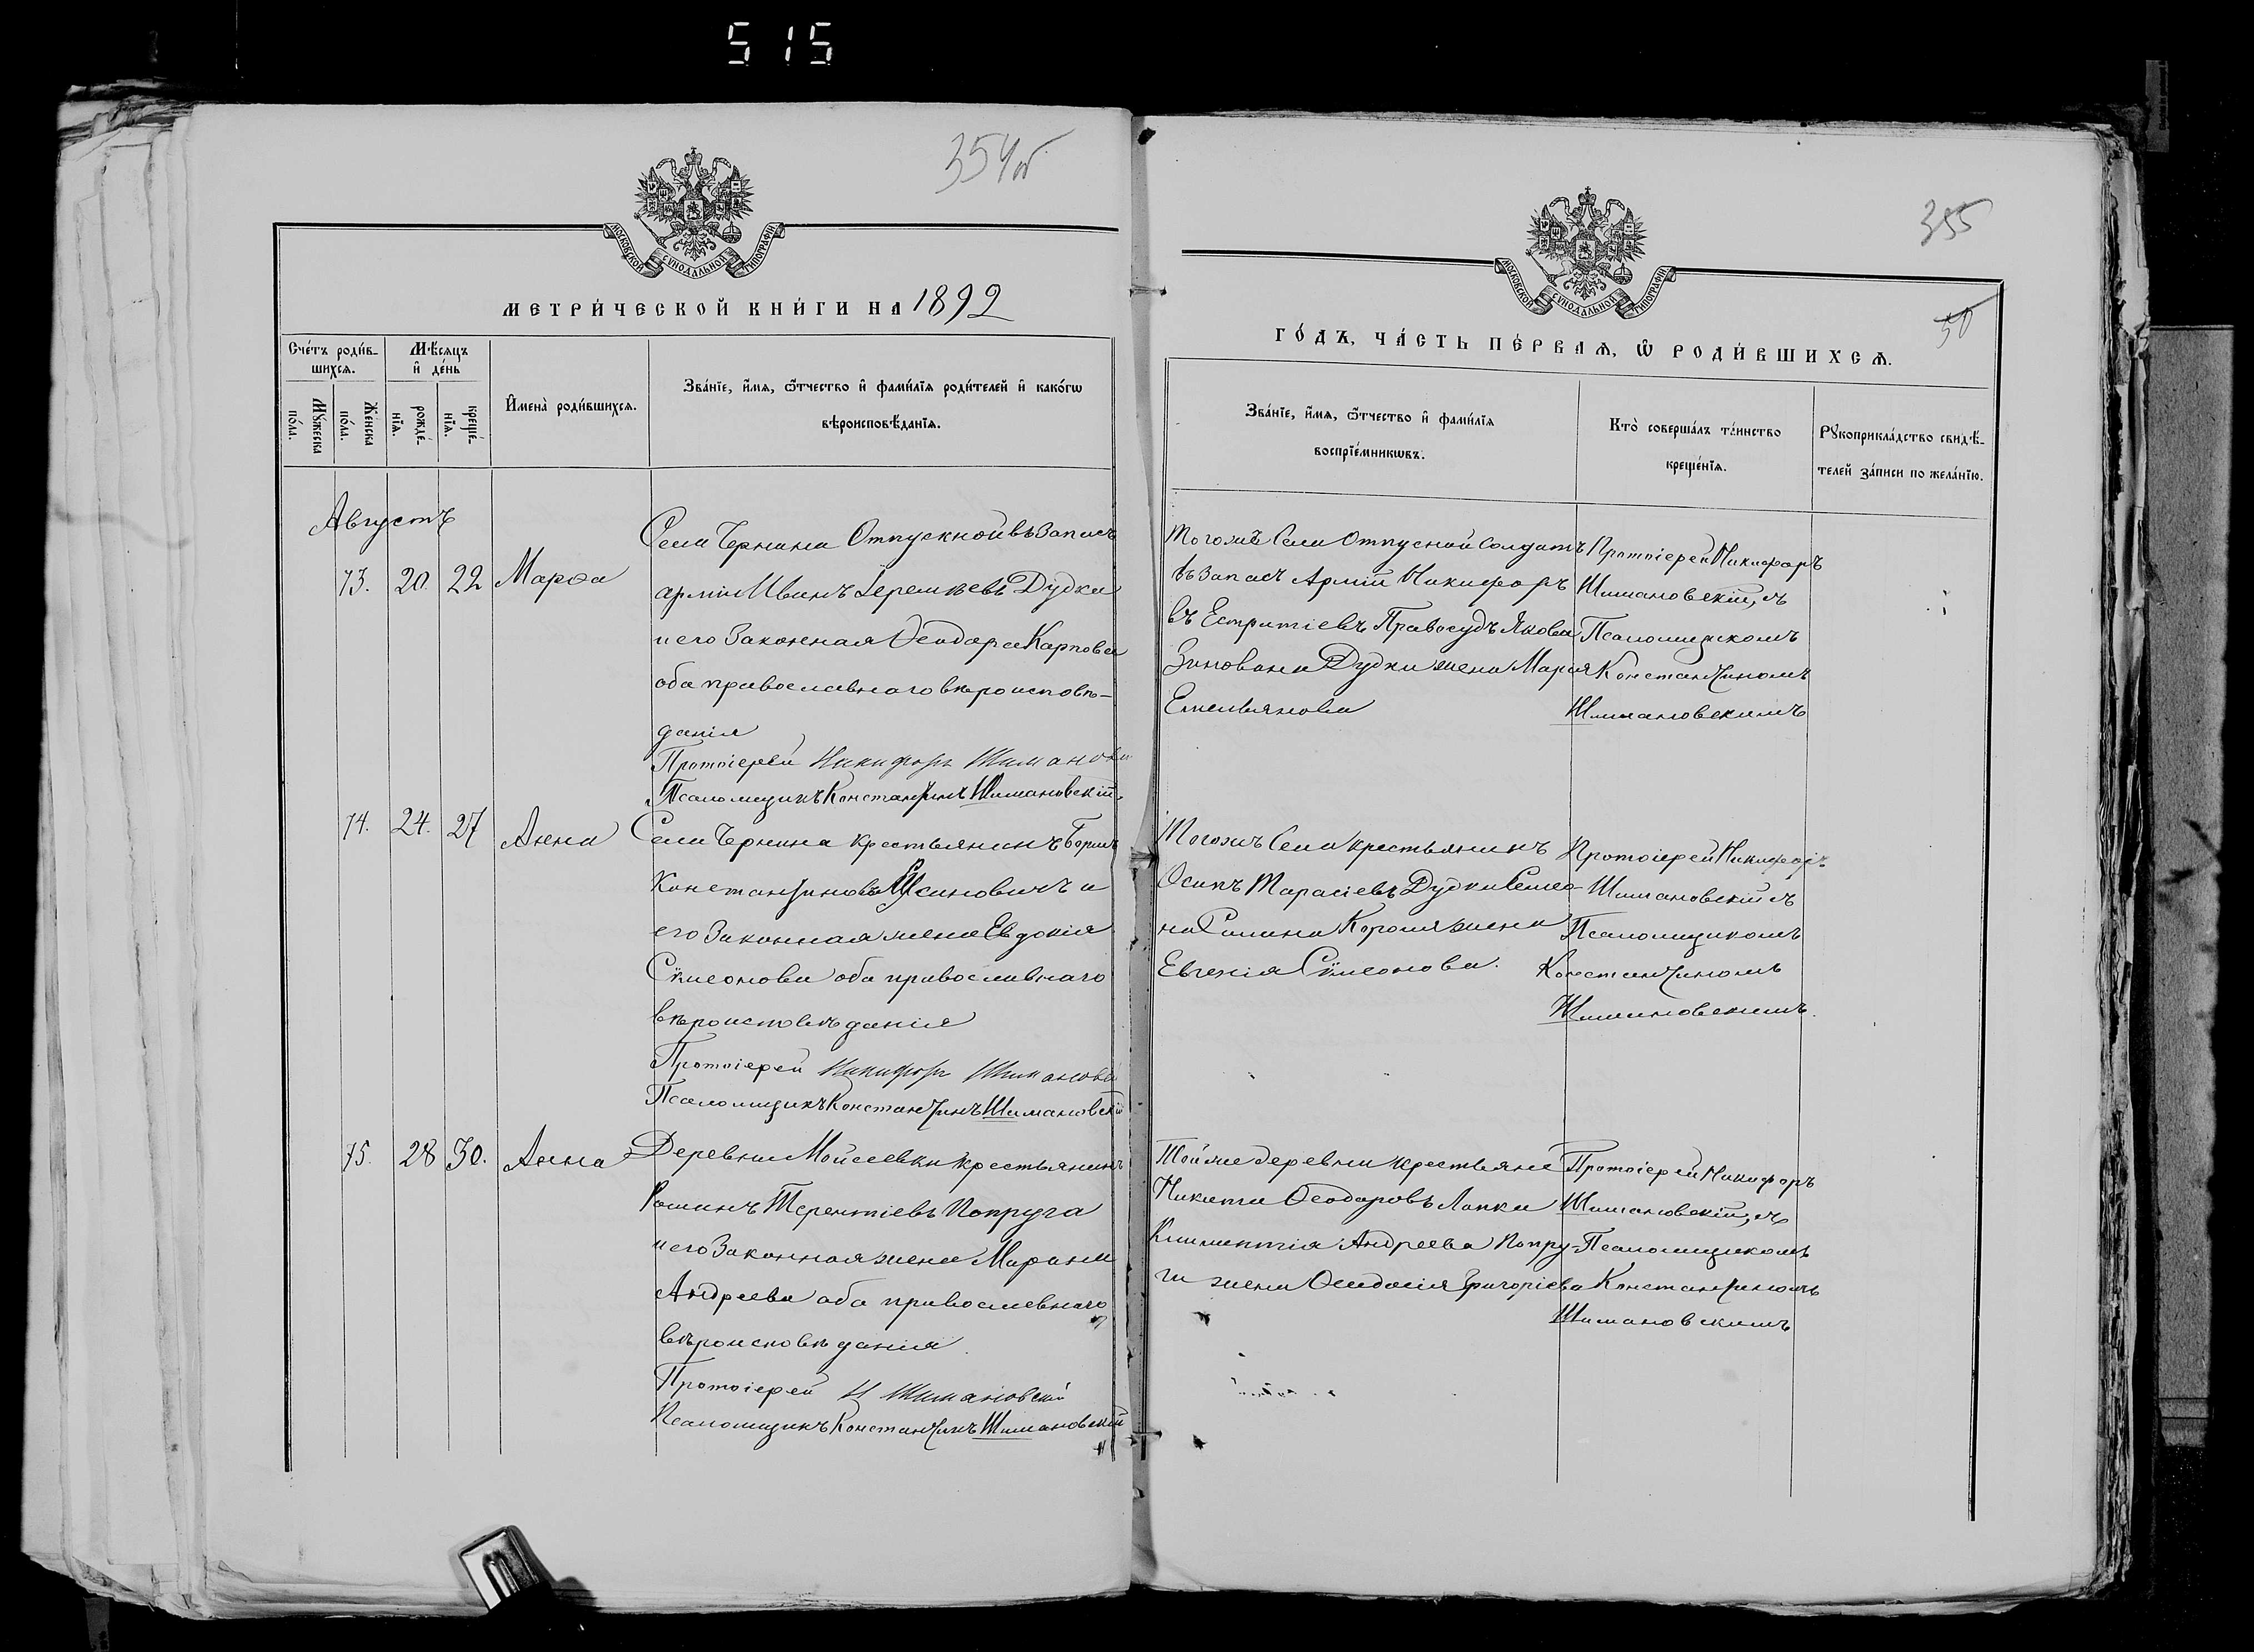 515
354об
МОСКОВСКОЙ СѴНОДАЛЬНОЙ ТИПОГРАФІИ
МЕТРИ́ЧЕСКОЙ КНИ́ГИ НА 1892
Сче́тъ роди́в-
шихсѧ.
Мꙋ́жеска
по́ла.
Же́нска
по́ла.
Мѣ́сѧцъ
и҆ де́нь
рожде́-
нїѧ.
креще́-
нїѧ.
И҆мена̀ роди́вшихсѧ.
Зва́нїе, и҆́мѧ, ѻ҆́тчество и҆ фами́лїѧ роди́телей и҆ како́гѡ
вѣроисповѣ́данїѧ.
Августъ
73. 20. 22 Марѳа
Села Чернина Отпускной въ Запасъ
арміи Иванъ Еремѣевъ Дудка
и его Законная Ѳеодора Карпова
оба православнаго вѣроисповѣ-
данія
Протоіерей Никифоръ Шиманов
Псаломщикъ Константинъ Шимановскій
74. 24. 27 Анна
Села Чернина крестьянинъ Борисъ
Константиновъ и
его Законная жена Евдокія
Симеонова оба православнаго
вѣроисповѣданія
Протоіерей Никифоръ Шимановскій
Псаломщикъ Константинъ Шимановскій
75. 28 30. Анна
Деревни Мойсеевки крестьянинъ
Романъ Терентіевъ Попруга
и его Законная жена Марина
Андреева оба православнаго
вѣроисповѣданія
Протоіерей Н Шимановскій
Псаломщикъ Константинъ Шимановскій
355
50
МОСКОВСКОЙ СѴНОДАЛЬНОЙ ТИПОГРАФІИ
ГО́ДЪ, ЧА́СТЬ ПЕ́РВАѦ, Ѡ҆ РОДИ́ВШИХСѦ.
Зва́нїе, и҆́мѧ, ѻ҆́тчество и҆ фами́лїѧ
воспрїе́мникѡвъ.
Кто̀ соверша́лъ та́инство
креще́нїѧ.
Рꙋкоприкла́дство свидѣ́-
телей за́писи по жела́нїю.
Тогожъ Села Отпускной Солдатъ
въ Запасъ Арміи Никифоръ
въ Правосудъ Якова
Дудки жена Марія
Емельянова
Протоіерей Никифоръ
Шимановскій, съ
Псаломщикомъ
Константиномъ
Шимановскимъ
Тогожъ Села крестьянинъ
Осипъ Тарасіевъ Дудка Симео-
на Короля жена
Евгенія Симеонова.
Протоіерей Никифоръ
Шимановскій съ
Псаломщикомъ
Константиномъ
Шимановскимъ.
Тойже деревни крестьяне
Никита Ѳеодоровъ Лапка
Климентія Андреева Попру-
ги жена Ѳеодосія Григоріева
Протоіерей Никифоръ
Шимановскій, съ
Псаломщикомъ
Константиномъ
Шимановскимъ